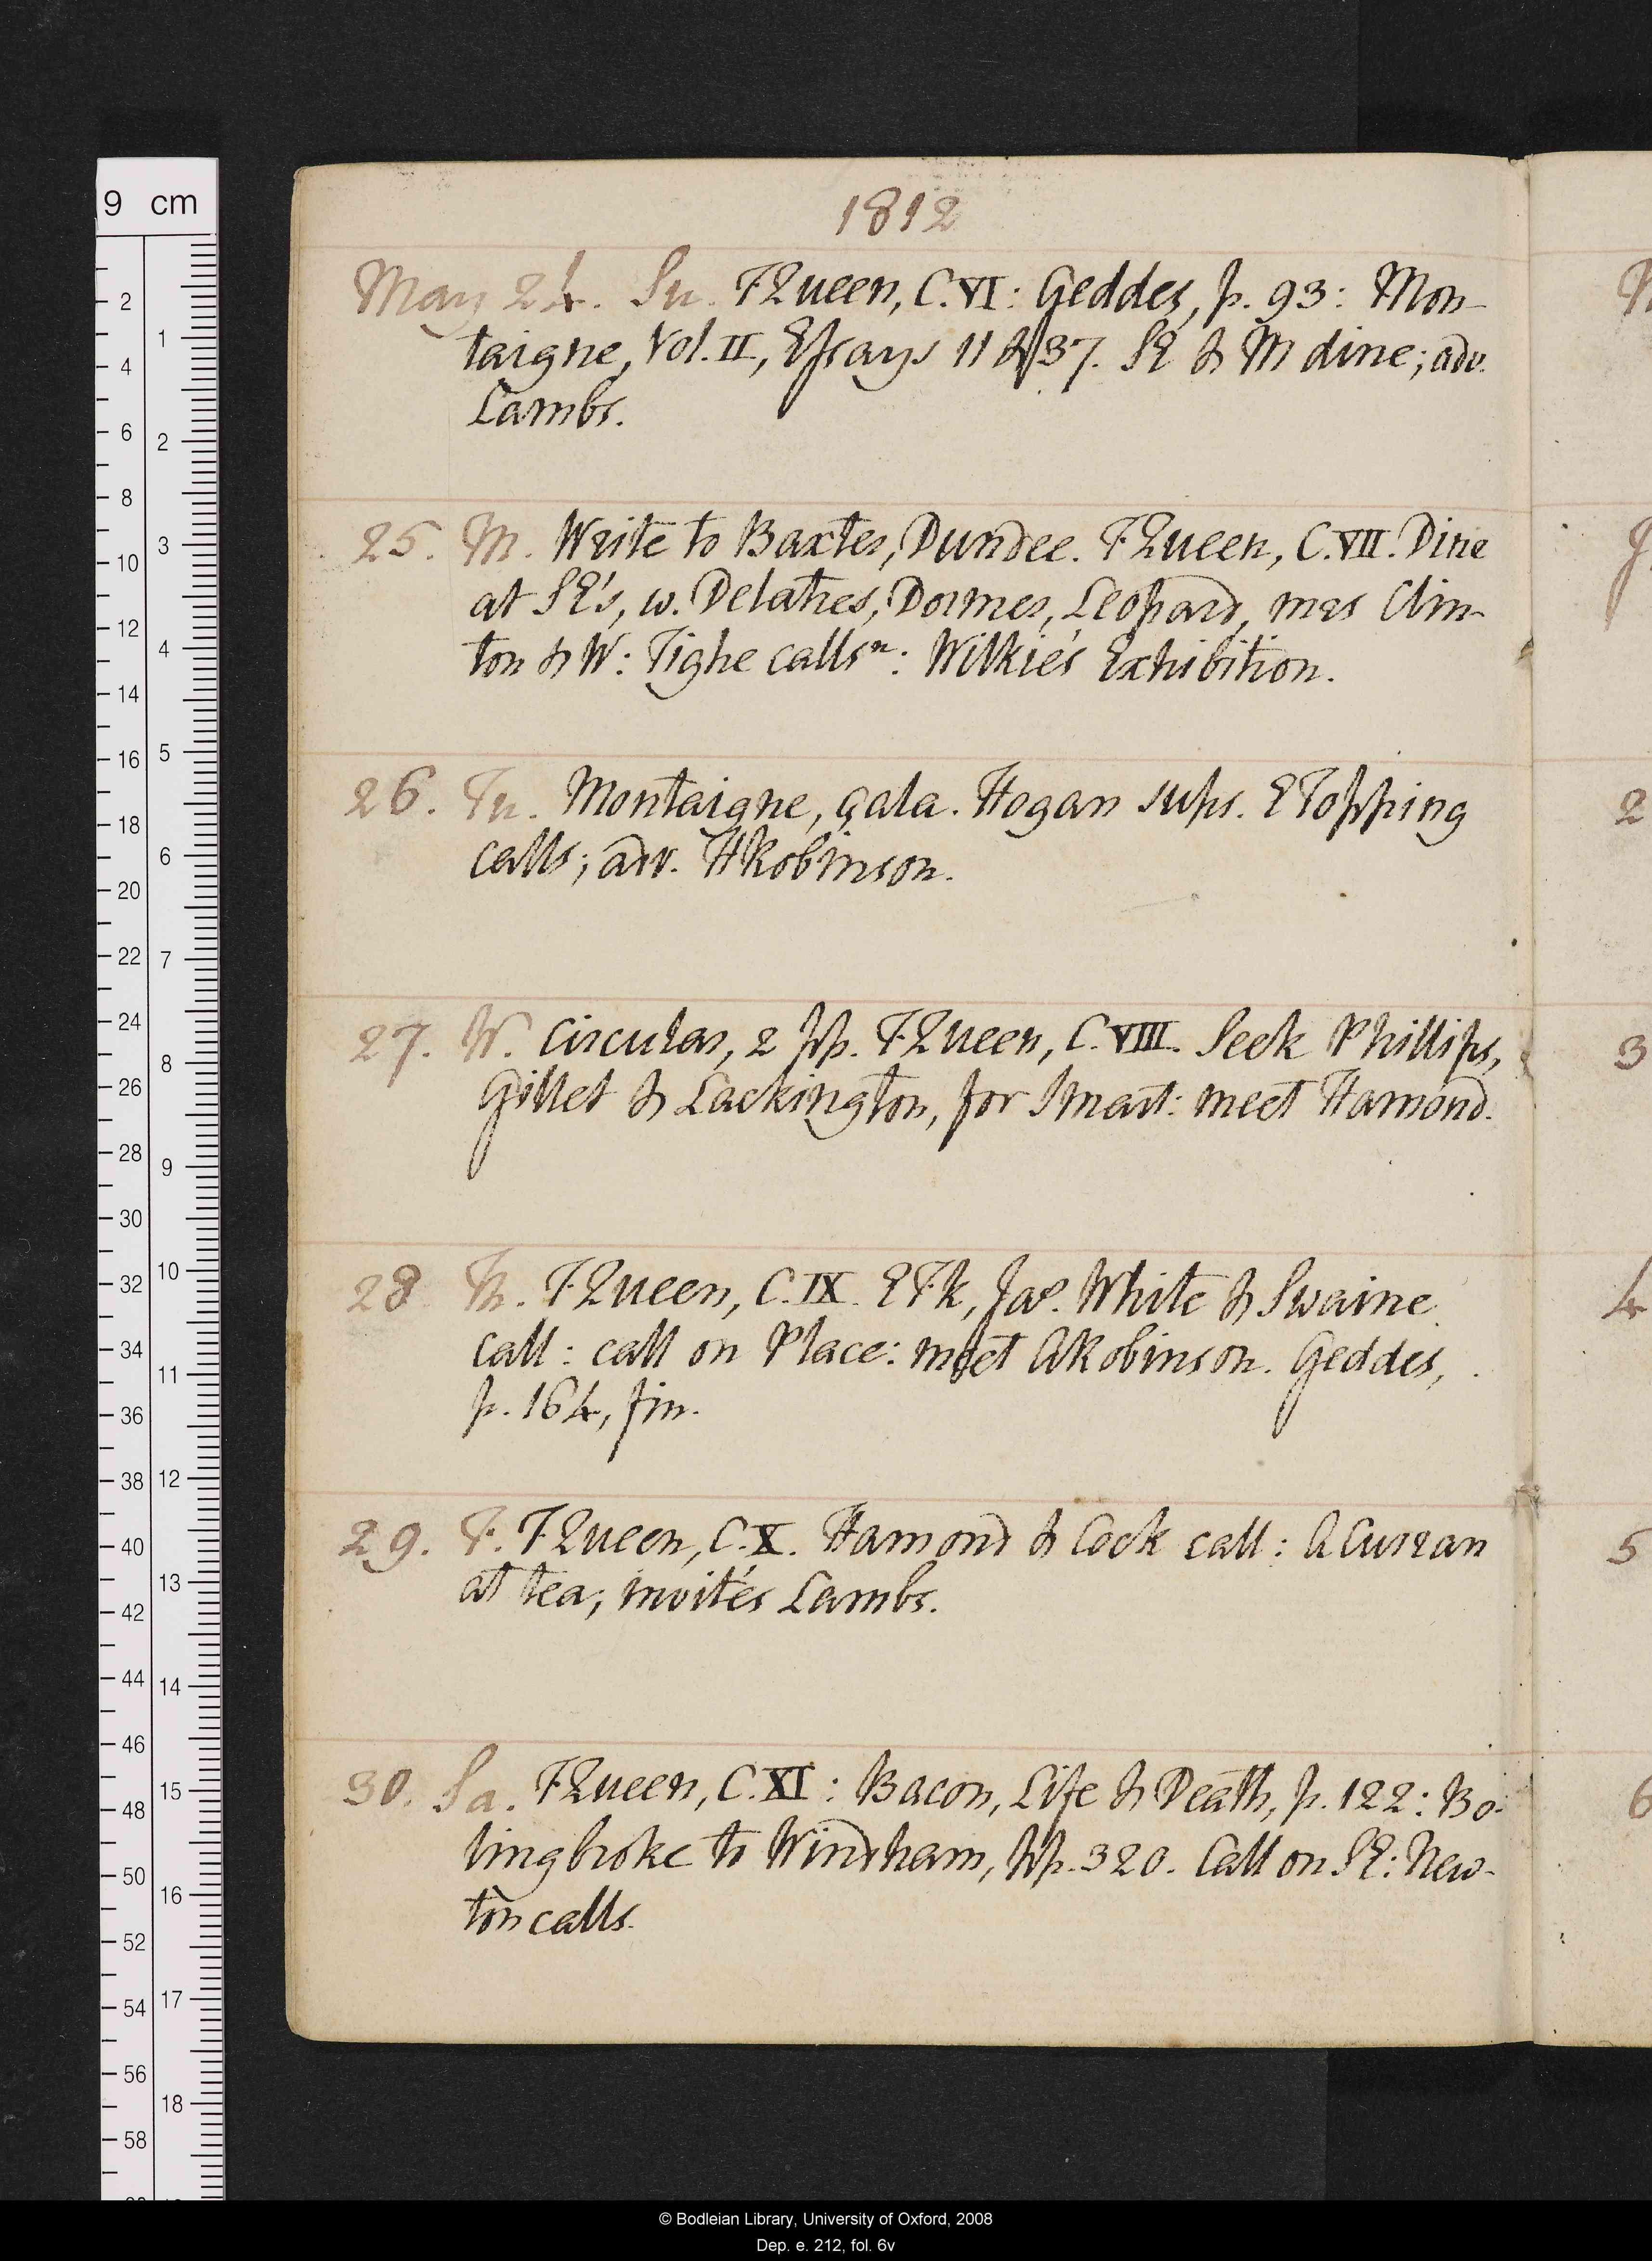 1812
May 24. Su. F Queen, C. VI: Geddes, p. 93: Mon-
taigne, Vol. II, Essays 11 & 37. SE & M dine; adv.
Lambs.
25. M. Write to Baxter, Dundee. F Queen, C. VII. Dine
at SE's, w. Delahes, Dormer, Leopard, mrs Clin-
ton & W: Tighe calls n: Wilkie's Exhibition.
26. Tu. Montaigne, çala. Hogan sups. E Topping
calls; adv. H Robinson.
27. W. Circular, 2 pp. F Queen, C. VIII. Seek Phillips,
Gillet & Lackington, for Smart: meet Hamond.
28 Th. F Queen, C. IX. E Fk, Jas. White & Swaine
call: call on Place: meet A Robinson. Geddes,
p. 164, fin.
29. F. F Queen, C. X. Hamond & Cock call: A Curran
at tea; invités Lambs.
30. Sa. F Queen, C. XI: Bacon, Life & Death, p. 122: Bo-
lingbroke to Windham, pp. 320. Call on SE: New-
ton calls.
9 cm
© Bodleian Library, University of Oxford, 2008
Dep. e. 212, fol. 6v